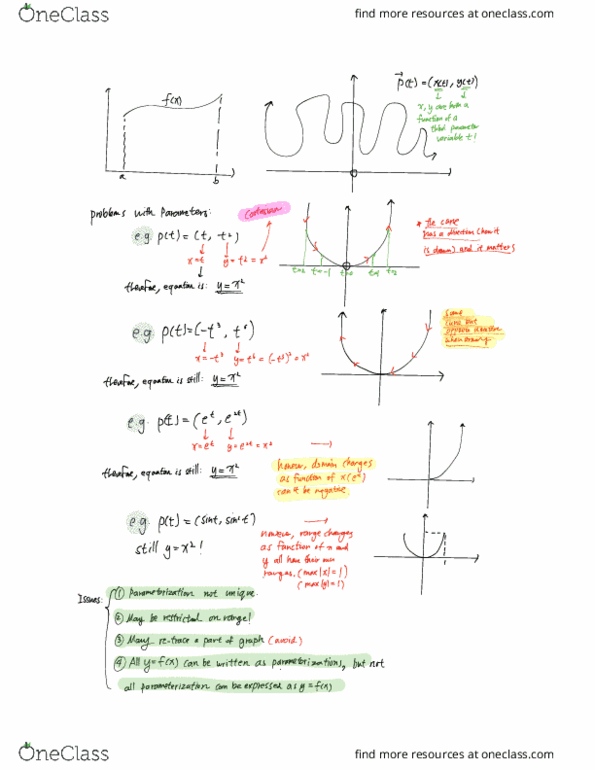 OneClass
find more resources at oneclass.com
f(x)
a
b
p(t)=(x(t), y(t))
x, y are both a
function of a
third parameter
variable t!
problems with parameters:
Cartesian
e.g. p(t) = (t, t²)
x=t y=t²=x²
therefore, equation is: y=x²
* The curve
has a direction (how it
is drawn) and it matters
t=-2 t=-1 t=0 t=1 t=2
e.g. p(t)=(-t³, t⁶)
x=-t³ y=t⁶=(-t³)²=x²
therefore, equation is still: y=x²
Same
curve but
opposite direction
when drawing
e.g. p(t)=(eᵗ, e²ᵗ)
x=eᵗ y=e²ᵗ=x²
therefore, equation is still: y=x²
however, domain changes
as function of x(eᵗ)
can't be negative
e.g. p(t)=(sint, sin²t)
still y=x²!
however, range changes
as function of x and
y all have their own
ranges. (max|x|=1)
(max|y|=1)
Issues:
① Parameterization not unique.
② May be restricted on range!
③ May re-trace a part of graph (avoid)
④ All y=f(x) can be written as parametrizations, but not
all parameterization can be expressed as y=f(x)
OneClass
find more resources at oneclass.com